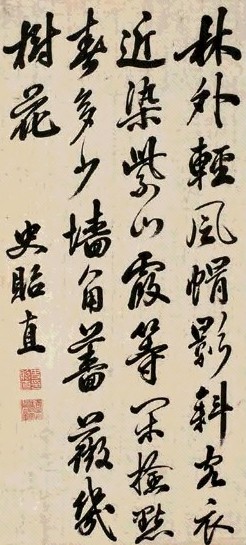 林外輕風帽影斜客衣
近染紫山霞等閒撿點
春多少墻角薔薇幾
樹花
史貽直